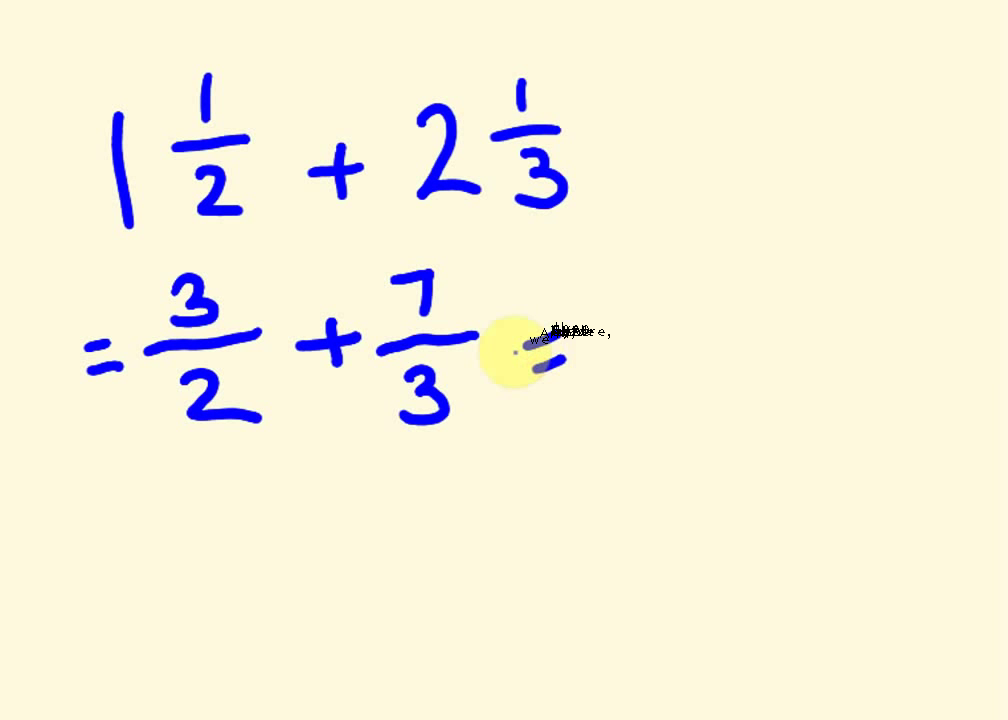 1 1/2 + 2 1/3
= 3/2 + 7/3 =
we